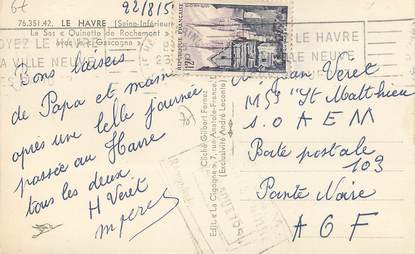 6f
22/8/5
76.351.42. LE HAVRE (Seine-Inférieure)
Le Sas « Quinette de Rochemont »
avec le « Gascogne »
LE HAVRE
VILLE NEUVE
LE HAVRE
VILLE NEUVE
REPUBLIQUE FRANÇAISE
Bons baisers
de Papa et maman
après une belle journée
passée au Havre
tous les deux
H Veret
Cliché Gilbert Fernez
Edit. « La Cigogne », 7, rue Anatole-France
(Exclusivité André Leconte)
Jean Veret
M/S "St Matthieu
S.O A E M
Boite postale
103
Pointe Noire
A O F